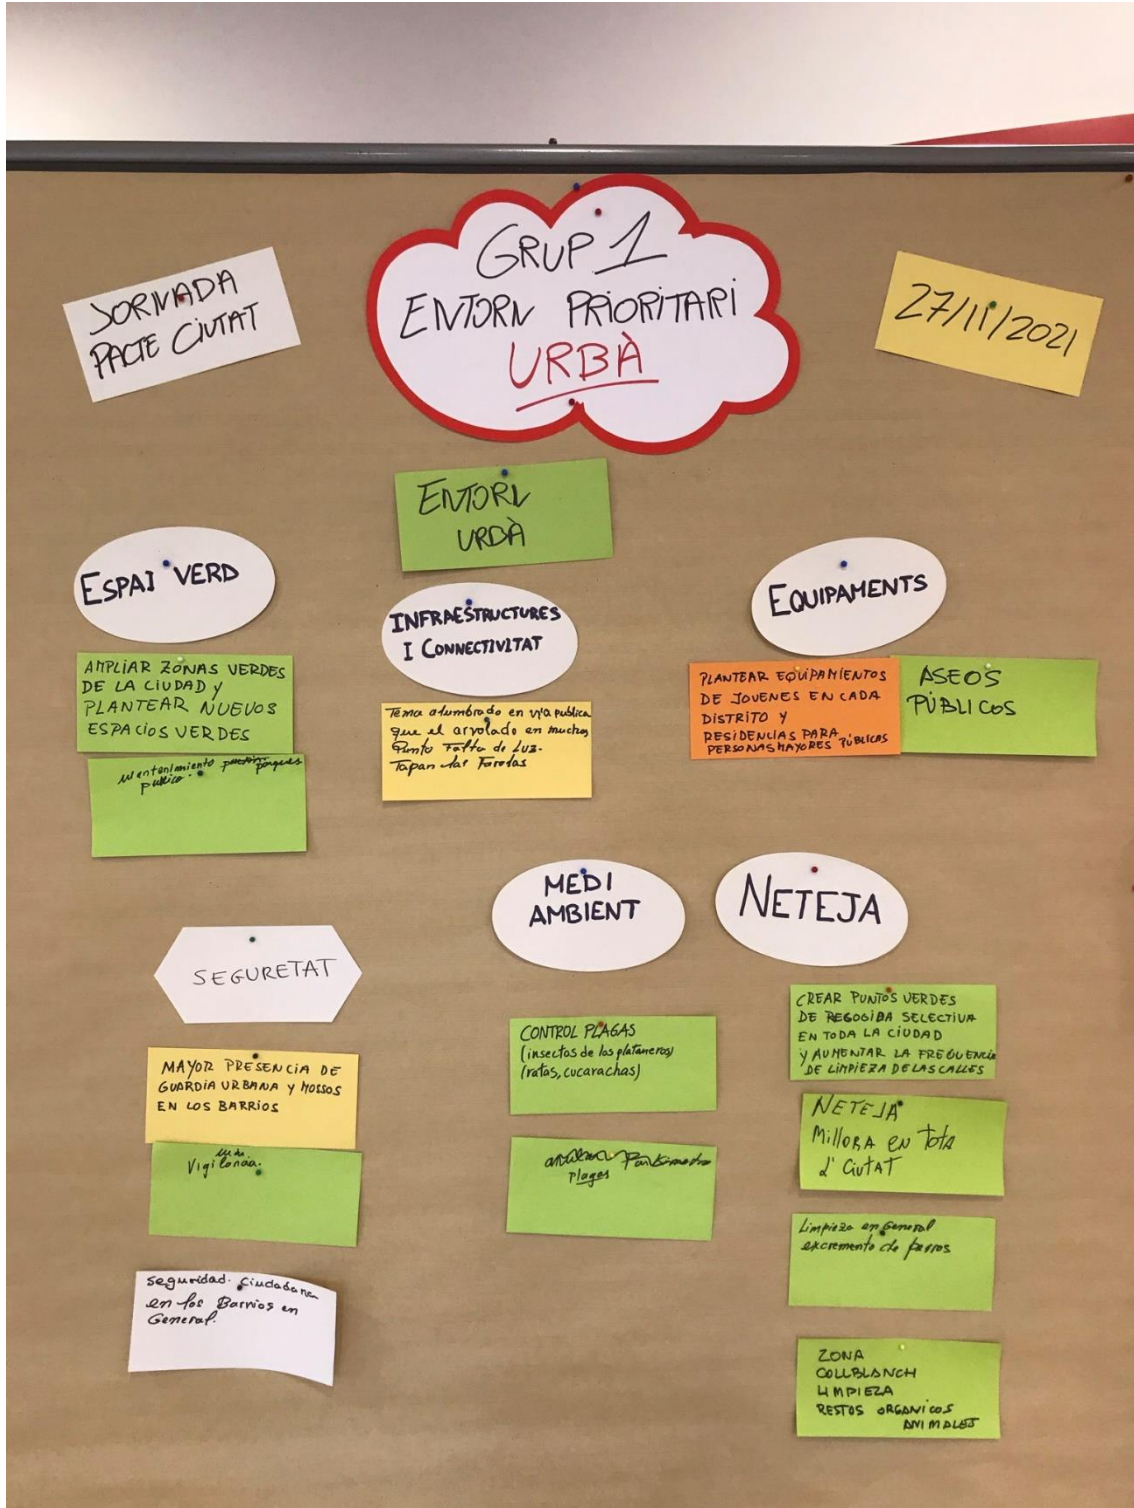 JORNADA
PACTE CIUTAT
GRUP 1
ENTORN PRIORITARI
URBÀ
27/11/2021
ENTORN
URBÀ
ESPAI VERD
AMPLIAR ZONAS VERDES
DE LA CIUDAD Y
PLANTEAR NUEVOS
ESPACIOS VERDES
Mantenimiento parques
publico.
INFRAESTRUCTURES
I CONNECTIVITAT
Tema alumbrado en via publica
que el arvolado en muchos
Punto Falta de Luz.
Tapan las Farolas
EQUIPAMENTS
PLANTEAR EQUIPAMIENTOS
DE JOVENES EN CADA
DISTRITO Y
RESIDENCIAS PARA
PERSONAS MAYORES PÚBLICAS
ASEOS
PÚBLICOS
SEGURETAT
MAYOR PRESENCIA DE
GUARDIA URBANA Y MOSSOS
EN LOS BARRIOS
Vigilancia.
Seguridad. Ciudadana
en los Barrios en
General.
MEDI
AMBIENT
CONTROL PLAGAS
(insectos de los plataneros)
(ratas, cucarachas)
Plagas
NETEJA
CREAR PUNTOS VERDES
DE REGOGIDA SELECTIVA
EN TODA LA CIUDAD
Y AUMENTAR LA FREQUENCIA
DE LIMPIEZA DE LAS CALLES
NETEJA
Millora en tota
d' Ciutat
Limpieza en General
excremento de perros
ZONA
COLLBLANCH
LIMPIEZA
RESTOS ORGANICOS
ANIMALES